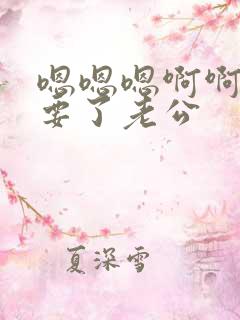 嗯嗯嗯啊啊
要了老公
夏深雪